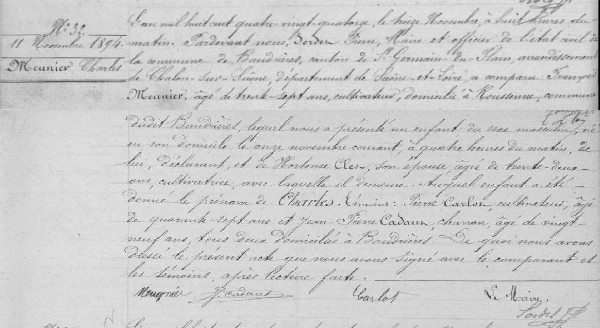 N°. 32
11 Novembre 1894.
Meunier Charles
L'an mil huit cent quatre vingt-quatorze, le treize Novembre, à huit heures du
matin. Pardevant nous, Pierre, Maire et officier de l'état civil de
la commune de Baudrières, canton de St Germain-du-Plain, arrondissement
de Chalon-sur-Saône, département de Saône-et-Loire, a comparu François
Meunier, âgé de trente-sept ans, cultivateur, domicilié à commune
dudit Baudrières, lequel nous a présenté un enfant du sexe masculin, né
en son domicile le onze novembre courant, à quatre heures du matin, de
lui, déclarant, et de Hortense Clerc, son épouse, âgée de trente-deux
ans, cultivatrice, avec laquelle il demeure. Auquel enfant a été
donné le prénom de Charles. Témoins: Pierre Carlot, cultivateur, âgé
de quarante-sept ans et Jean-Pierre Cadaux, charron, âgé de vingt-
neuf ans, tous deux domiciliés à Baudrières. De quoi nous avons
dressé le présent acte que nous avons signé avec le comparant et
les témoins, après lecture faite.
Meugnier J. Cadaux Carlot Le Maire,